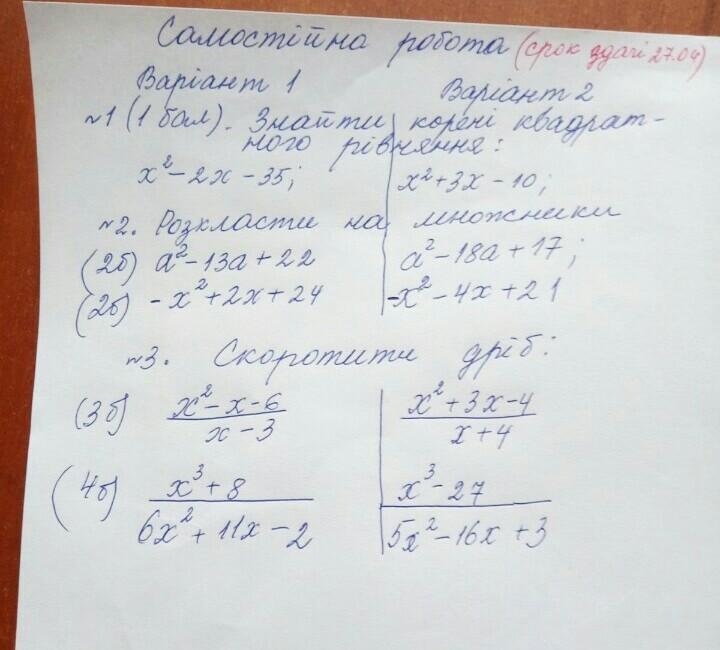 Самостійна робота (срок здачі 27.04)
Варіант 1 Варіант 2
№1 (1 бал). Знайти корені квадрат-
ного рівняння:
x² - 2x - 35; x² + 3x - 10;
№2. Розкласти на множники
(2б) a² - 13a + 22 a² - 18a + 17;
(2б) -x² + 2x + 24 -x² - 4x + 21
№3. Скоротити дріб:
(3б) x² - x - 6 x² + 3x - 4
x - 3 x + 4
(4б) x³ + 8 x³ - 27
6x² + 11x - 2 5x² - 16x + 3